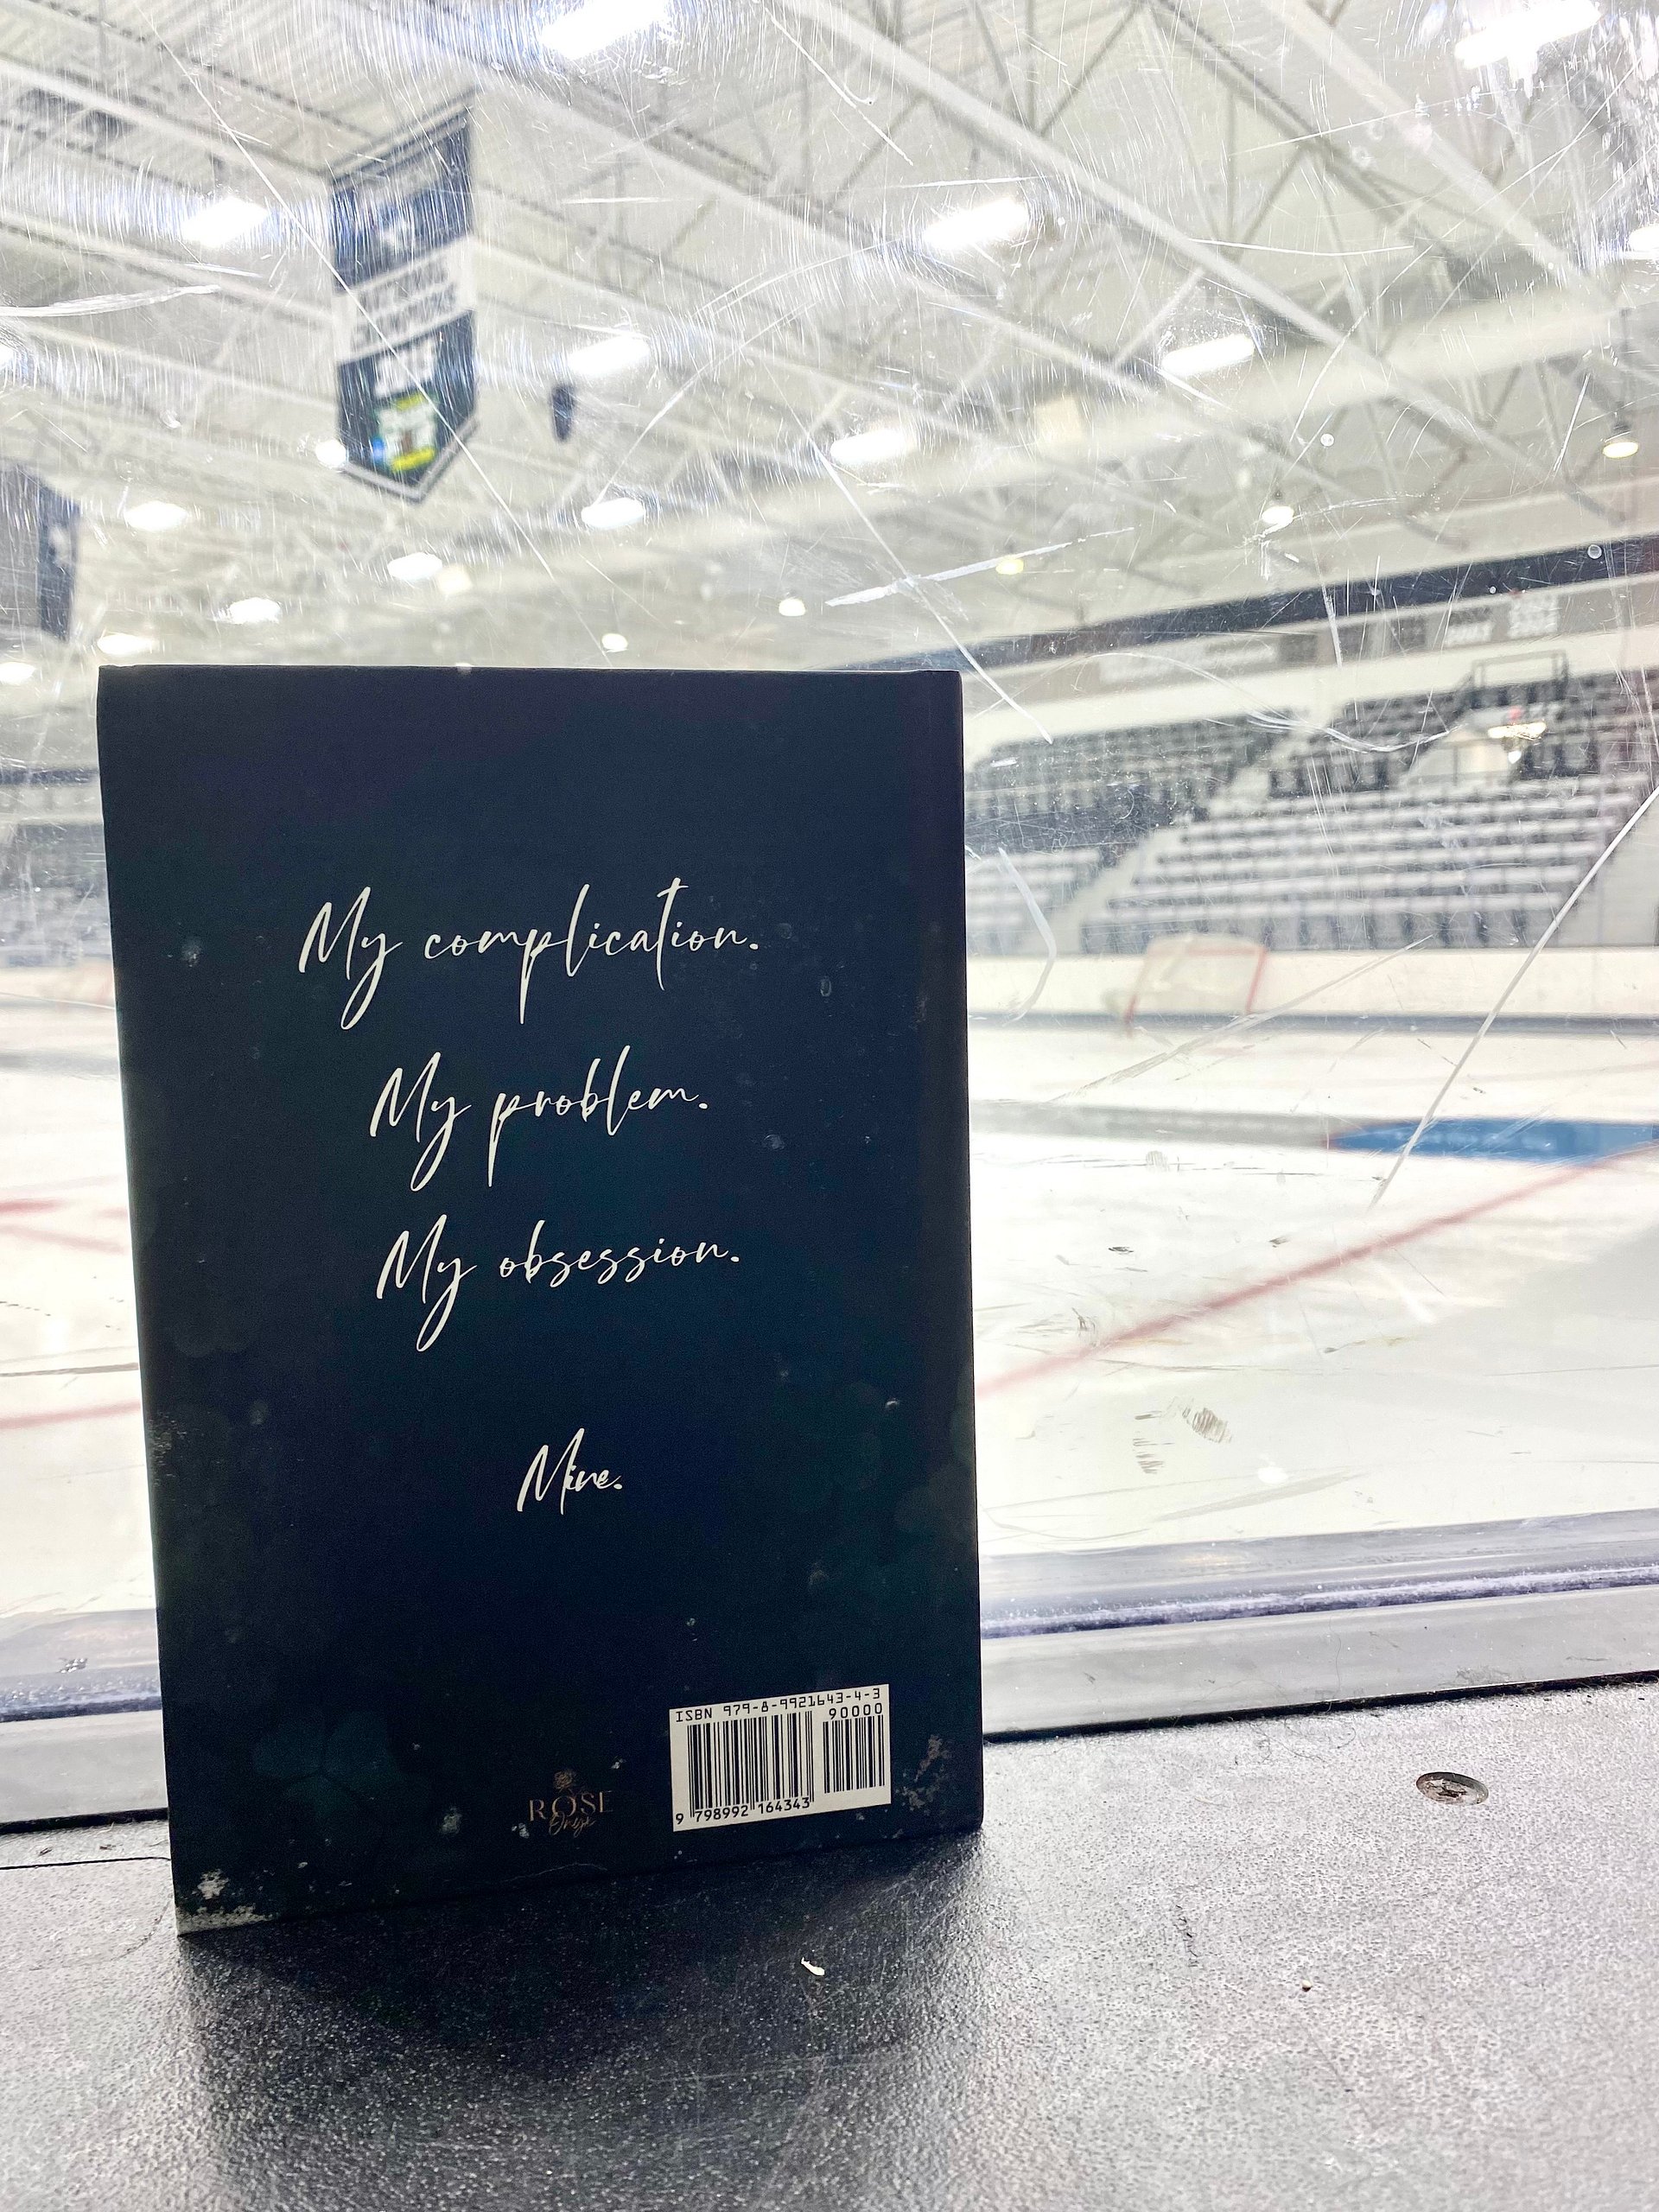 My complication.
My problem.
My obsession.
Mine.
ISBN 979-8-9921643-4-3
90000
9 798992 164343
ROSE
Onyx